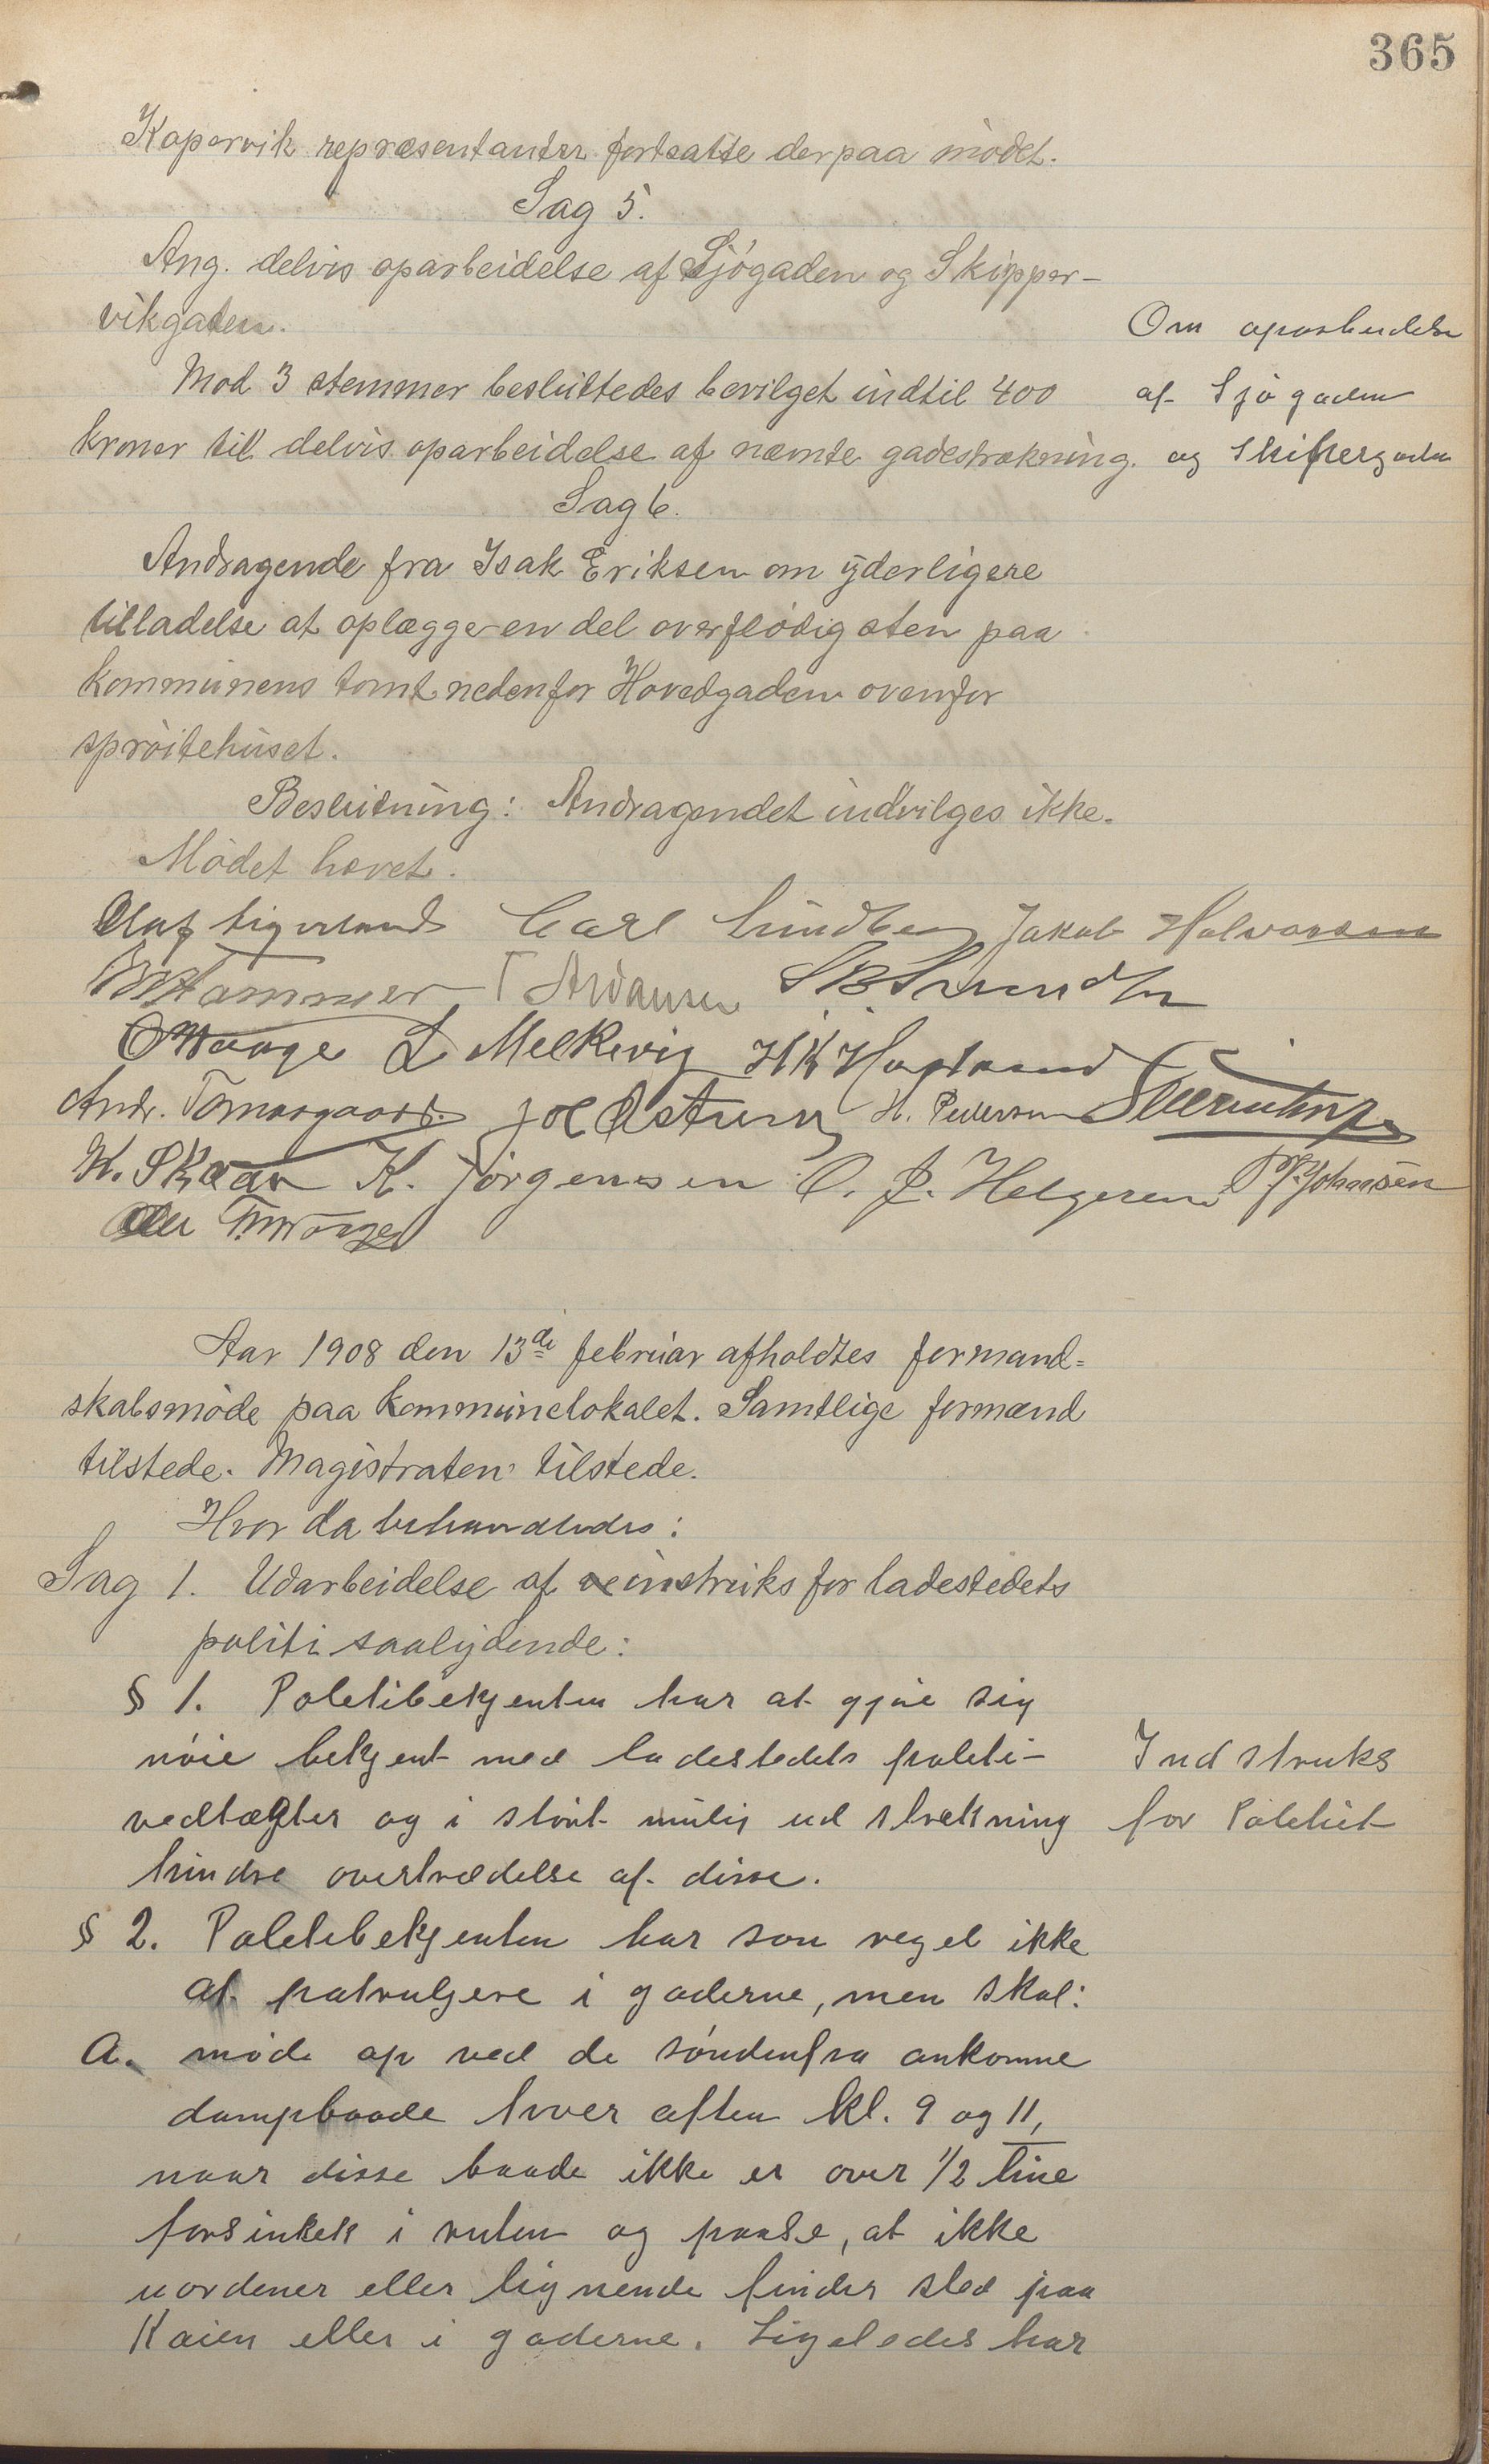 365
Kopervik repræsentanter fortsatte derpaa mödet.
Sag 5.
Ang. delvis oparbeidelse af Sjögaden og Skipper-
vikgaten.
Mod 3 stemmer besluttedes bevilget indtil 400
kroner til delvis oparbeidelse af nævnte gadestrækning.
Om oparbeidelse
af Sjögaden
og Skippergaden
Sag 6.
Andragende fra Isak Eriksen om yderligere
tilladelse at oplægge en del overflödig sten paa
kommunens tomt nedenfor Hovedgaden ovenfor
spröitehuset.
Beslutning: Andragendet indvilges ikke.
Mödet hævet.
Olaf Carl Lindberg Jakob Halvorsen
Hammer
O Waage L Melkevig
Andr. H. Pedersen
K. Skaar K. Jörgensen O. J. Helgesen Johnsen
Aar 1908 den 13de februar afholdtes formand=
skabsmöde paa kommunelokalet. Samtlige formænd
tilstede. Magistraten tilstede.
Hvor da behandledes:
Sag 1. Udarbeidelse af instruks for ladestedets
politi saalydende:
§ 1. Politibetjenten har at gjöre sig
nöie bekjent med ladestedets politi-
vedtægter og i störst mulig udstrekning
hindre overtrædelse af disse.
Indstruks
for Politiet
§ 2. Politibetjenten har som regel ikke
at patruljere i gaderne, men skal:
a. möde op ved de söndenfra ankomne
dampbaade hver aften kl. 9 og 11,
naar disse baade ikke er over 1/2 time
forsinket i ruten og paase, at ikke
uordener eller lignende finder sted paa
Kaien eller i gaderne. Ligeledes har